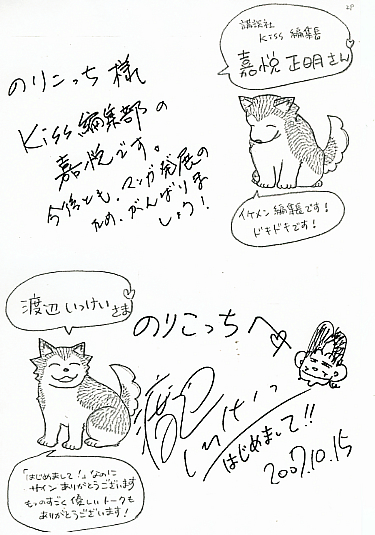 講談社
Kiss 編集長
嘉悦 正明さん
のりこっち 様
Kiss編集部の
嘉悦です。
今後とも、マンガ発展の
ため、がんばりま
しょう!
イケメン編集長です!
ドキドキです!
渡辺 いっけい さま
のりこっちへ
渡辺
いっけい
はじめまして!!
2007.10.15
「はじめまして!」なのに
サイン ありがとうございます
ものすごく 優しい トークも
ありがとうございます!